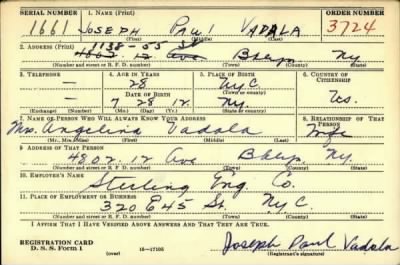 SERIAL NUMBER 1. NAME (Print) ORDER NUMBER
1661 JOSEPH PAUL VADALA 3724
(First) (Middle) (Last)
1138-55 St
2. ADDRESS (Print)
12 Ave Bklyn Ny
(Number and street or R. F. D. number) (Town) (County) (State)
3. TELEPHONE 4. AGE IN YEARS 5. PLACE OF BIRTH 6. COUNTRY OF CITIZENSHIP
— 28 NyC.
DATE OF BIRTH (Town or county)
— 7 28 12. Ny. Us.
(Exchange) (Number) (Mo.) (Day) (Yr.) (State or country)
7. NAME OF PERSON WHO WILL ALWAYS KNOW YOUR ADDRESS 8. RELATIONSHIP OF THAT PERSON
Mrs. Angelina Vadala Wife
(Mr., Mrs., Miss) (First) (Middle) (Last)
9. ADDRESS OF THAT PERSON
4802. 12 Ave Bklyn. Ny.
(Number and street or R. F. D. number) (Town) (County) (State)
10. EMPLOYER'S NAME
Sterling Eng. Co.
11. PLACE OF EMPLOYMENT OR BUSINESS
320 E 45 St. Ny C.
(Number and street or R. F. D. number) (Town) (County) (State)
I AFFIRM THAT I HAVE VERIFIED ABOVE ANSWERS AND THAT THEY ARE TRUE.
REGISTRATION CARD
D. S. S. Form 1 16—17105 Joseph Paul Vadala
(over) (Registrant's signature)